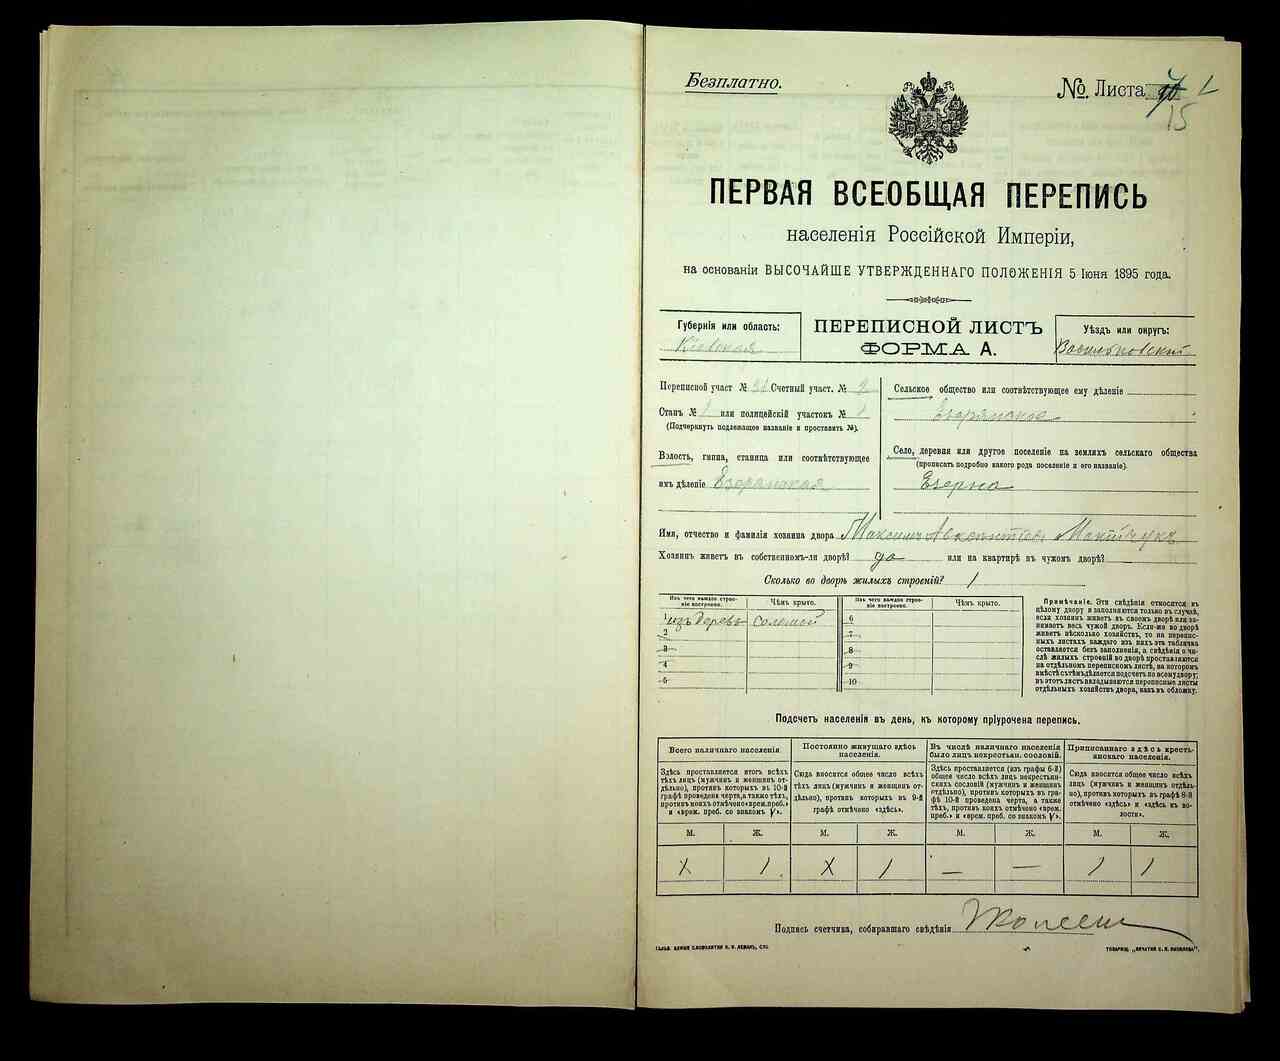 Безплатно.
№. Листа
15
ПЕРВАЯ ВСЕОБЩАЯ ПЕРЕПИСЬ
населенія Россійской Имперіи,
на основаніи ВЫСОЧАЙШЕ УТВЕРЖДЕННАГО ПОЛОЖЕНІЯ 5 Іюня 1895 года.
Губернія или область:
Кіевская
ПЕРЕПИСНОЙ ЛИСТЪ
ФОРМА А.
Уѣздъ или округъ:
Васильковскій
Переписной участ № Счетный участ. № 2
Станъ № 1 или полицейскій участокъ №
(Подчеркнуть подлежащее названіе и проставить №).
Волость, гмина, станица или соотвѣтствующее
имъ дѣленіе Езерянская
Сельское общество или соотвѣтствующее ему дѣленіе
Езерянское
Село, деревня или другое поселеніе на земляхъ сельскаго общества
(прописать подробно какого рода поселеніе и его названіе).
Езерна
Имя, отчество и фамилія хозяина двора Максимъ
Хозяинъ живетъ въ собственномъ-ли дворѣ? да или на квартирѣ въ чужомъ дворѣ?
Сколько во дворѣ жилыхъ строеній? 1
Изъ чего каждое строеніе построено.
Чѣмъ крыто.
Изъ чего каждое строеніе построено.
Чѣмъ крыто.
1 изъ дерева соломой
2
3
4
5
6
7
8
9
10
Примѣчаніе. Эти свѣдѣнія относятся къ
цѣлому двору и заполняются только въ случаѣ,
если хозяинъ живетъ въ своемъ дворѣ или за-
нимаетъ весь чужой дворъ. Если-же во дворѣ
живетъ нѣсколько хозяйствъ, то на перепис-
ныхъ листахъ каждаго изъ нихъ эта табличка
оставляется безъ заполненія, а свѣдѣнія о чи-
слѣ жилыхъ строеній во дворѣ проставляются
на отдѣльномъ переписномъ листѣ, на которомъ
вмѣстѣ съ тѣмъ дѣлается подсчетъ по всему двору;
въ этотъ листъ вкладываются переписные листы
отдѣльныхъ хозяйствъ двора, какъ въ обложку.
Подсчетъ населенія въ день, къ которому пріурочена перепись.
Всего наличнаго населенія
Здѣсь проставляется итогъ всѣхъ
лицъ (мужчинъ и женщинъ от-
дѣльно), противъ которыхъ въ 10-й
графѣ проведена черта, а также тѣхъ,
противъ коихъ отмѣчено «врем. преб.»
и «врем. преб. со знакомъ V».
Постоянно живущаго здѣсь
населенія.
Сюда вносится общее число всѣхъ
тѣхъ лицъ (мужчинъ и женщинъ от-
дѣльно), противъ которыхъ въ 9-й
графѣ отмѣчено «здѣсь».
Въ числѣ наличнаго населенія
было лицъ некрестьян. сословій.
Здѣсь проставляется (изъ графы 6-й)
общее число всѣхъ лицъ некрестьян-
скихъ сословій (мужчинъ и женщинъ
отдѣльно), противъ которыхъ въ гра-
фѣ 10-й проведена черта, а также
тѣхъ, противъ коихъ отмѣчено «врем.
преб.» и «врем. преб. со знакомъ V».
Приписаннаго здѣсь кресть-
янскаго населенія.
Сюда вносится общее число всѣхъ
лицъ (мужчинъ и женщинъ отдѣль-
но), противъ которыхъ въ графѣ 8-й
отмѣчено «здѣсь» и «здѣсь въ во-
лости».
М. Ж. М. Ж. М. Ж. М. Ж.
X 1 X 1 — — 1 1
Подпись счетчика, собиравшаго свѣдѣнія